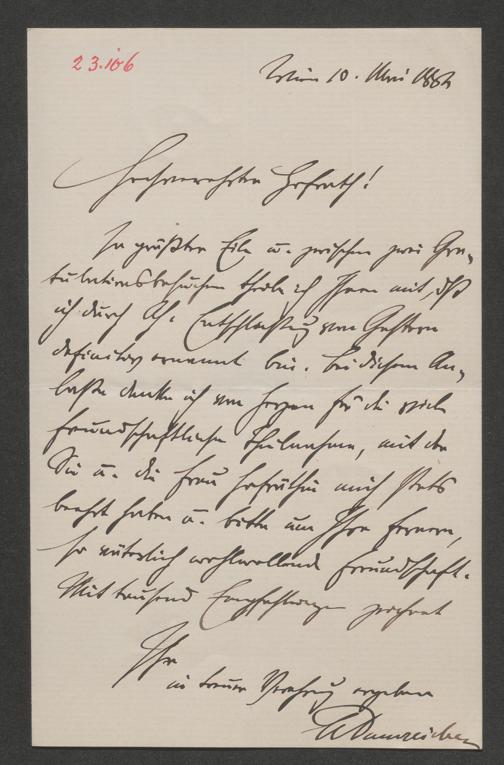 23.106
Wien 10. Mai 1884
Hochverehrter Hofrath!
In größter Eile u. zwischen zwei Gra-
tulationsbesuchen theile ich Ihnen mit, dß
ich durch Ah. Entschließung von Gestern
definitiv ernannt bin. Bei diesem An-
laße danke ich von Herzen für die viele
freundschaftliche Theilnahme, mit der
Sie u. die Frau Hofräthin mich stets
beehrt haben u. bitte um Ihre fernere,
so väterlich wohlwollende Freundschaft.
Mit tausend Empfehlungen zeichnet
Ihr
in treuer Verehrung ergebener
Dumreicher